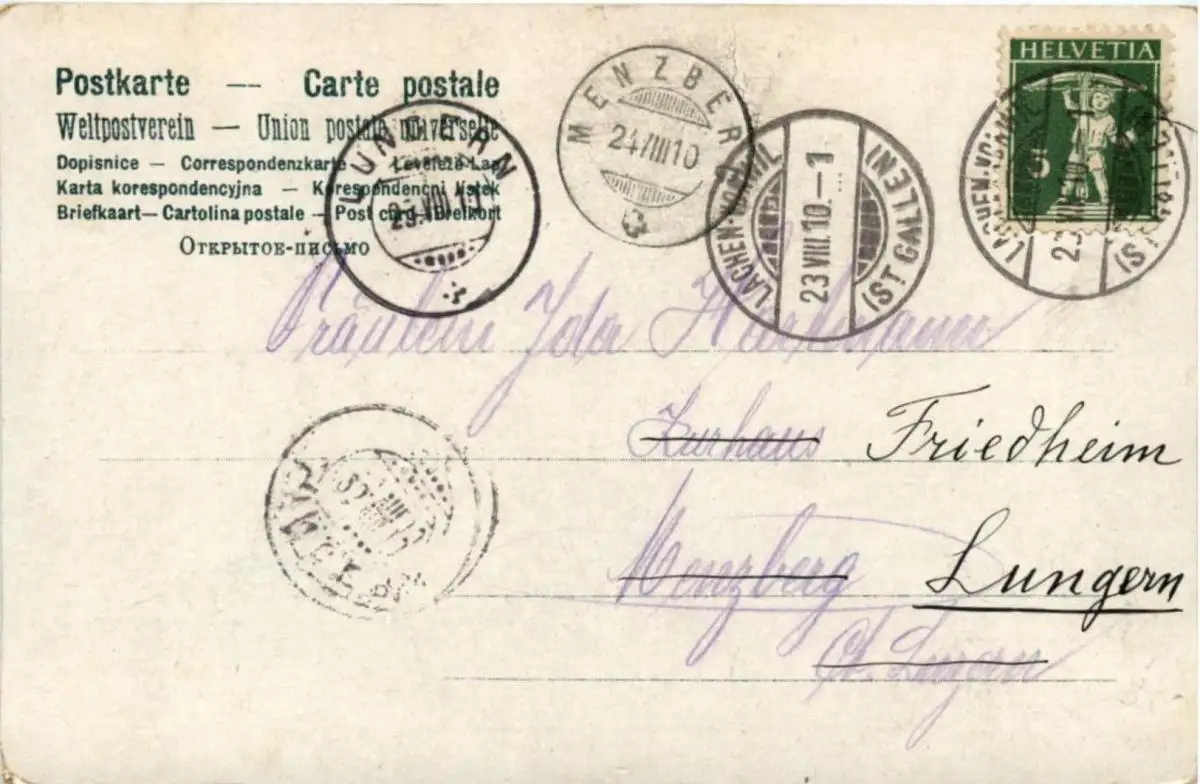 Postkarte — Carte postale
Weltpostverein — Union postale universelle
Dopisnice — Correspondenzkarte — Levelező-Lap
Karta korespondencyjna — Korespondenčni listek
Briefkaart — Cartolina postale — Post card — Brefkort
Открытое-письмо
LUNGERN
VIII.10
MENZBERG
24 VIII 10
LACHEN-VONWIL
23 VIII.10.-1
(ST GALLEN)
HELVETIA
5
LACHEN-VONWIL
23 VIII
(ST GALLEN)
Fräulein Ida
Kurhaus Friedheim
Menzberg Lungern
Ct. Luzern